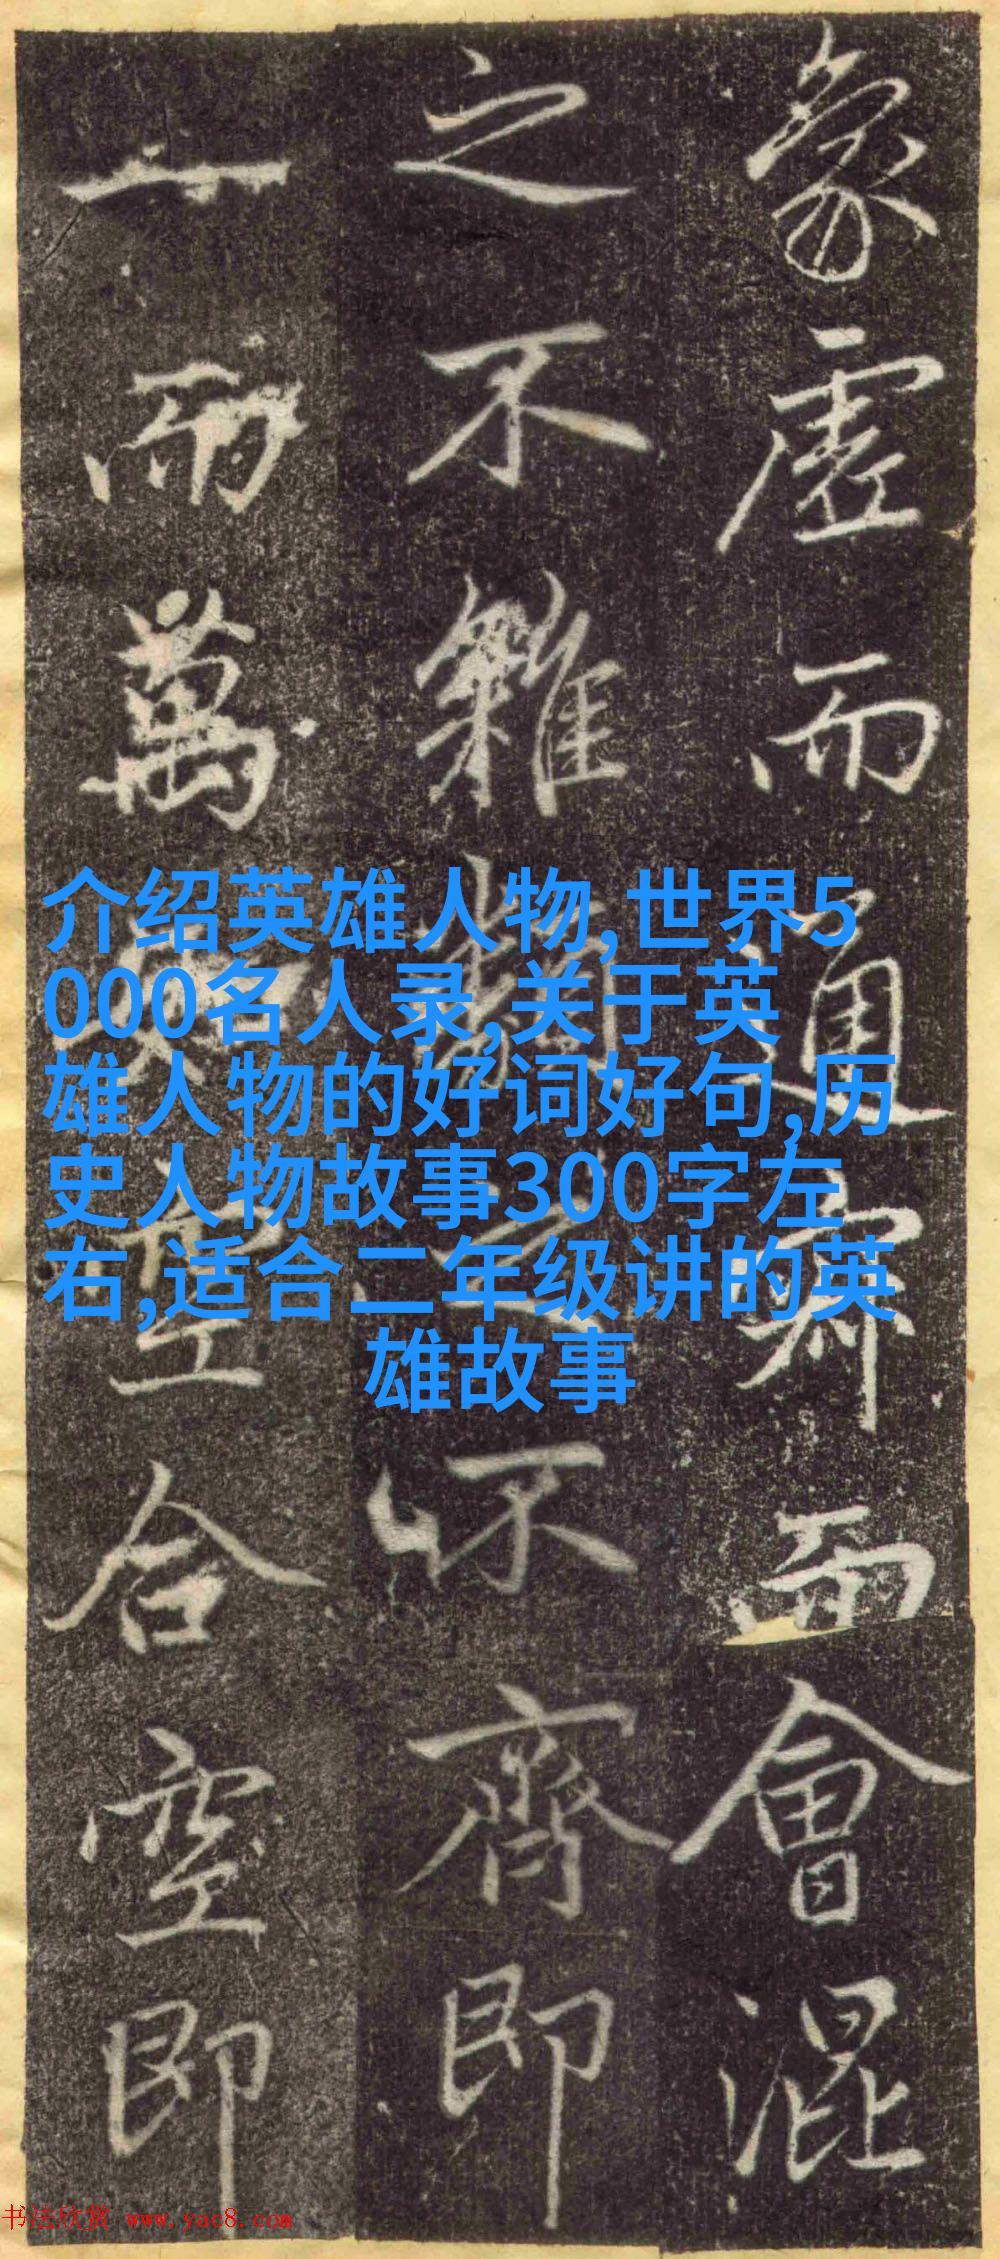 象虛而通
而會混
之不雜
之不齊即
一而萬
空合空即
介绍英雄人物,世界5
000名人录,关于英
雄人物的好词好句,历
史人物故事300字左
右,适合二年级讲的英
雄故事
书法欣赏 www.yac8.com